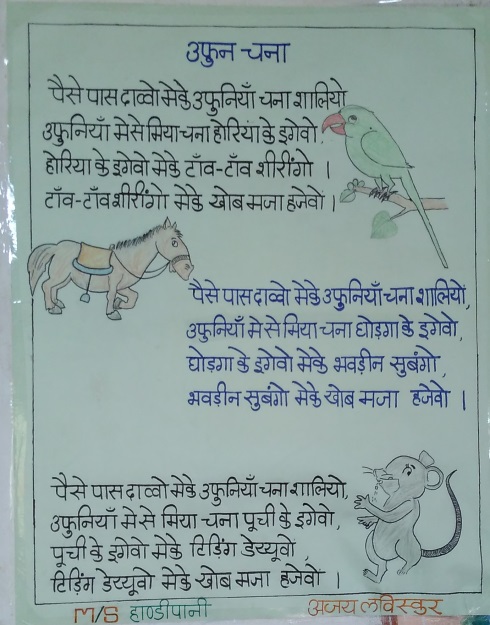 उफुन चना
पैसे पास दाव्वो मेके उफुनियाँ चना शालियो
उफुनियाँ मेसे मिया चना होरिया के इगेवो,
होरिया के इगेवो मेके टाँव-टाँव शीरींगो ।
टाँव-टाँव शीरींगो मेके खोब मजा हजेवो ।
पैसे पास दाव्वो मेके उफुनियाँ चना शालियो,
उफुनियाँ मेसे मिया चना घोड़गा के इगेवो,
घोड़गा के इगेवो मेके भवड़ीन सुबंगो,
भवड़ीन सुबंगो मेके खोब मजा हजेवो ।
पैसे पास दाव्वो मेके उफुनियाँ चना शालियो,
उफुनियाँ मेसे मिया चना पूची के इगेवो,
पूची के इगेवो मेके टिडिंग डेय्यूवो,
टिडिंग डेय्यूवो मेके खोब मजा हजेवो ।
M/S हाण्डीपानी
अजय लविस्कर